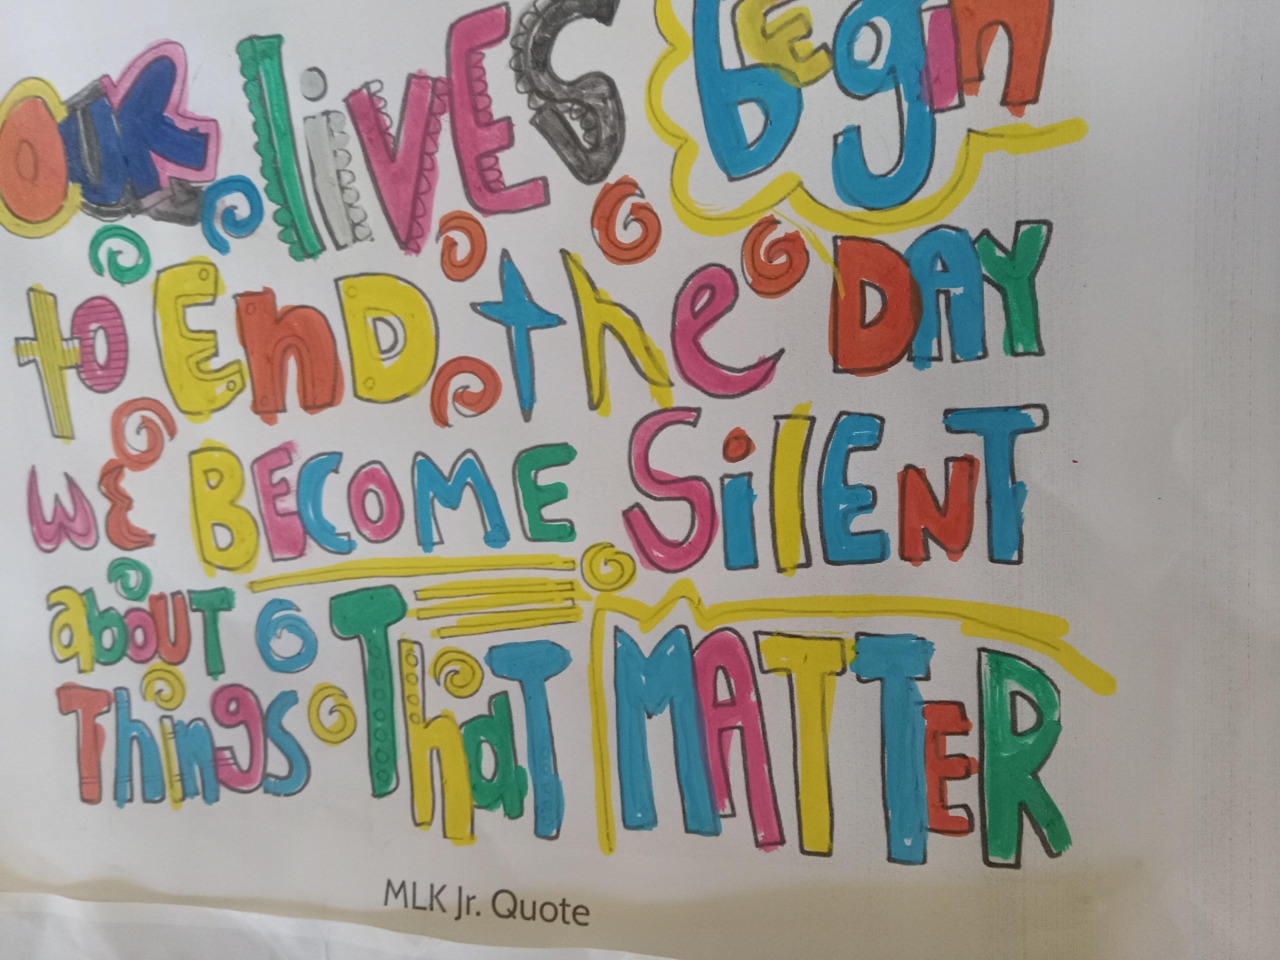 OUR liVES begin
to EnD the DAY
wE BECOME SilENT
aboUT
Things That MATTER
MLK Jr. Quote